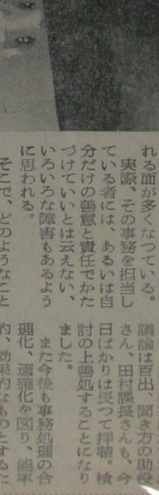 れる面が多くなつている。
実際、その事務を担当し
ている者には、あるいは自
分だけの善意と責任でかた
づけていいとは云えない、
いろいろな障害もあるよう
に思われる。
そこで、どのようなこと
議論は百出、聞き方の助役
さん、田村課長さんも、今
日ばかりは畏つて拝聴。検
討の上善処することになり
ました。
また今後も事務処理の合
理化、適適化を図り、能率
的、効果的なものとするた